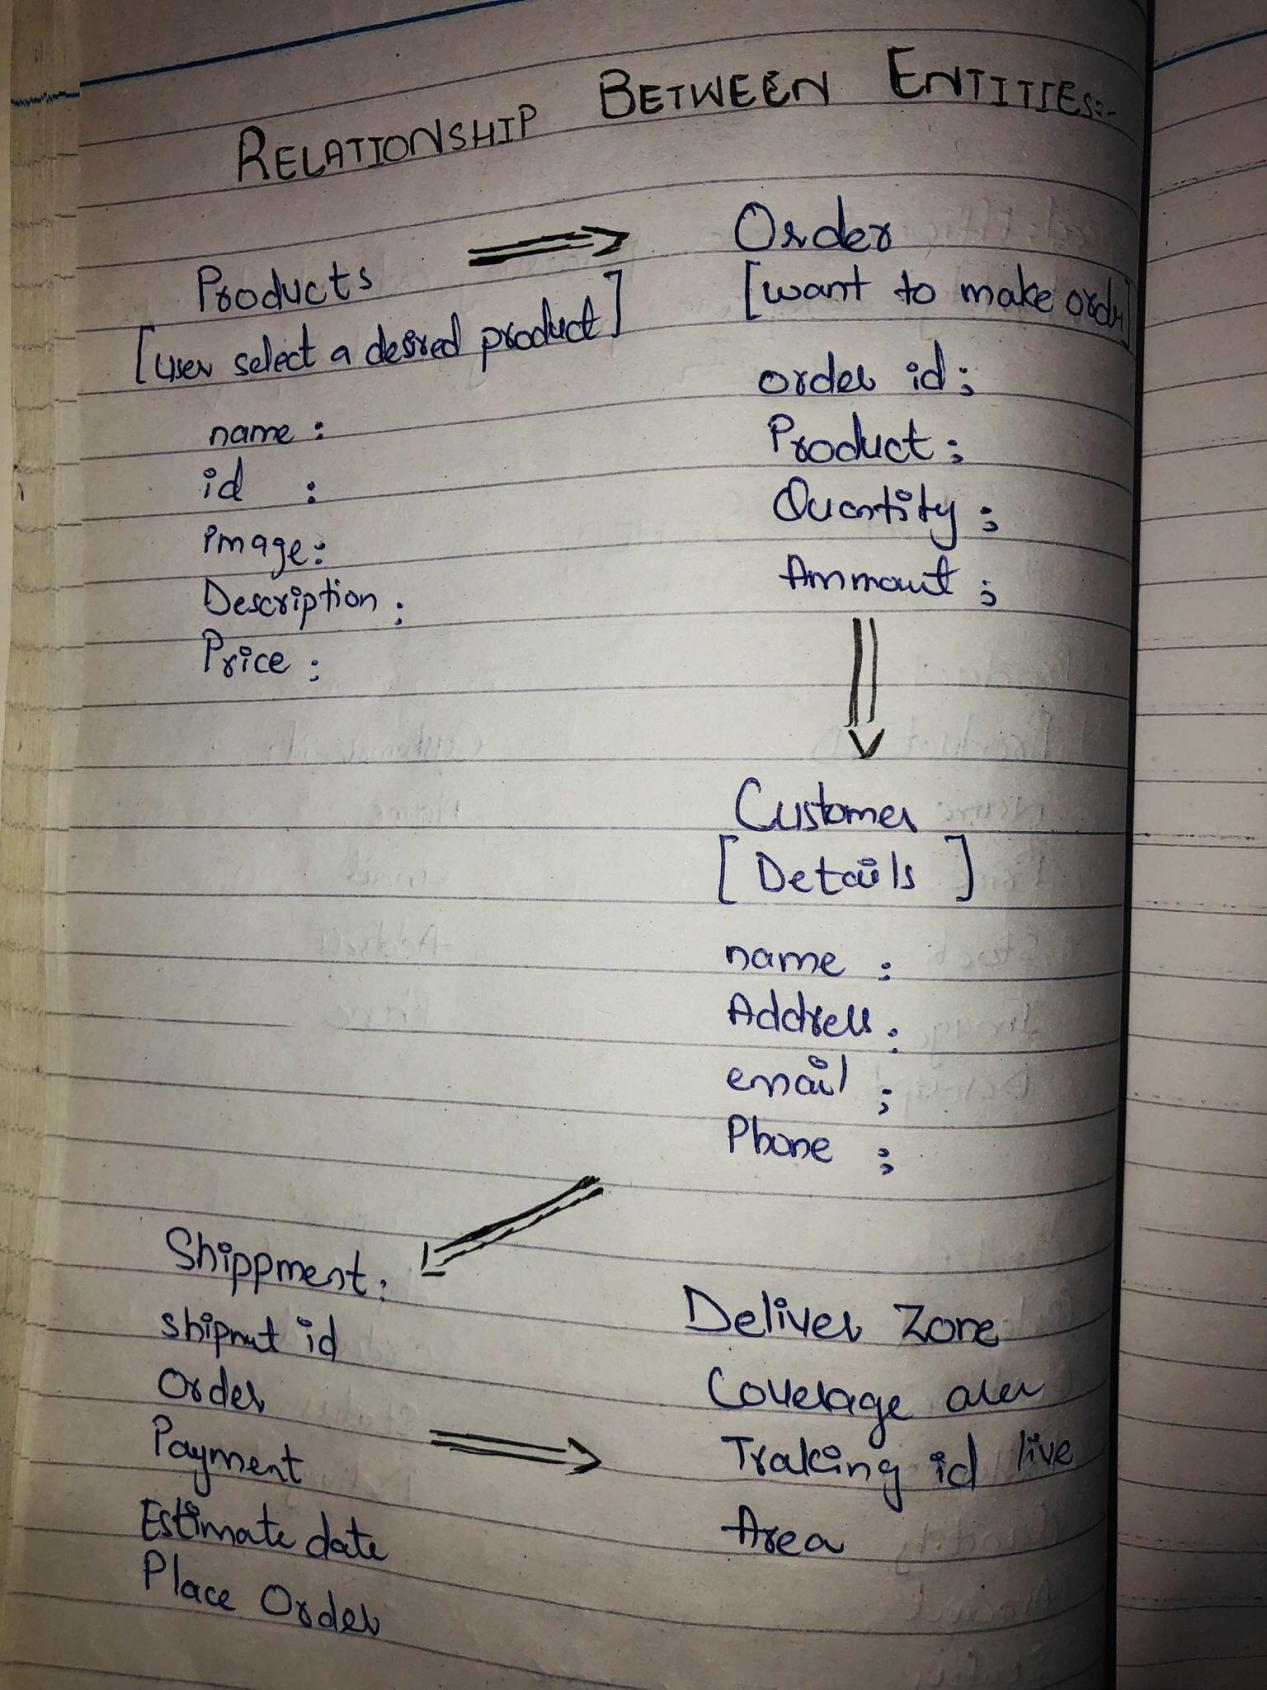 RELATIONSHIP BETWEEN ENTITIES:-
Products
[user select a desired product]
name :
id :
image :
Description :
Price :
Order
[want to make order]
order id ;
Product ;
Quantity ;
Ammount ;
Customer
[Details]
name :
Address :
email ;
Phone ;
Shippment :
shipmnt id
Order
Payment
Estimate date
Place Order
Deliver Zone
Coverage area
Traking id live
Area